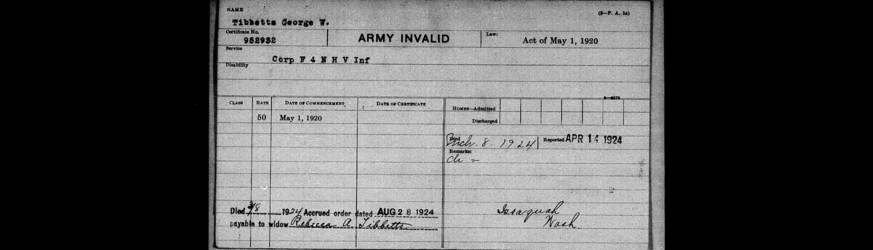 NAME
(3-P. A. 3a)
Tibbetts George W.
Certificate No.
952932
ARMY INVALID
Law:
Act of May 1, 1920
Service
Corp F 4 N H V Inf
Disability
CLASS RATE DATE OF COMMENCEMENT DATE OF CERTIFICATE
HOMES—Admitted
Discharged
50 May 1, 1920
Died Mch. 8. 1924 Reported APR 14 1924
Remarks:
Died 3/8 1924 Accrued order dated AUG 28 1924
payable to widow Rebecca A. Tibbetts
Issaquah
Wash